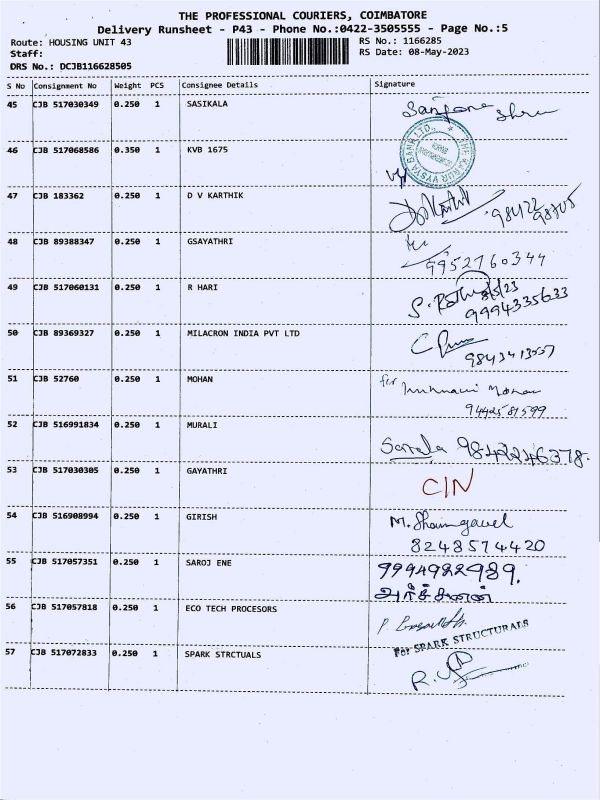 THE PROFESSIONAL COURIERS, COIMBATORE
Delivery Runsheet - P43 - Phone No.:0422-3505555 - Page No.:5
Route: HOUSING UNIT 43 RS No.: 1166285
Staff: RS Date: 08-May-2023
DRS No.: DCJB116628505
S No Consignment No Weight PCS Consignee Details Signature
45 CJB 517030349 0.250 1 SASIKALA
46 CJB 517068586 0.350 1 KVB 1675
47 CJB 183362 0.250 1 D V KARTHIK
48 CJB 89388347 0.250 1 GSAYATHRI
9952760344
49 CJB 517060131 0.250 1 R HARI
9994335633
50 CJB 89369327 0.250 1 MILACRON INDIA PVT LTD
51 CJB 52760 0.250 1 MOHAN for
Mohan
9442581599
52 CJB 516991834 0.250 1 MURALI
Sarala 9842246378.
53 CJB 517030305 0.250 1 GAYATHRI
C/N
54 CJB 516908994 0.250 1 GIRISH M. Shanmgavel
8248574420
55 CJB 517057351 0.250 1 SAROJ ENE 9994922989.
அர்ச்சனன்
56 CJB 517057818 0.250 1 ECO TECH PROCESORS
For SPARK STRUCTURALS
57 CJB 517072833 0.250 1 SPARK STRCTUALS